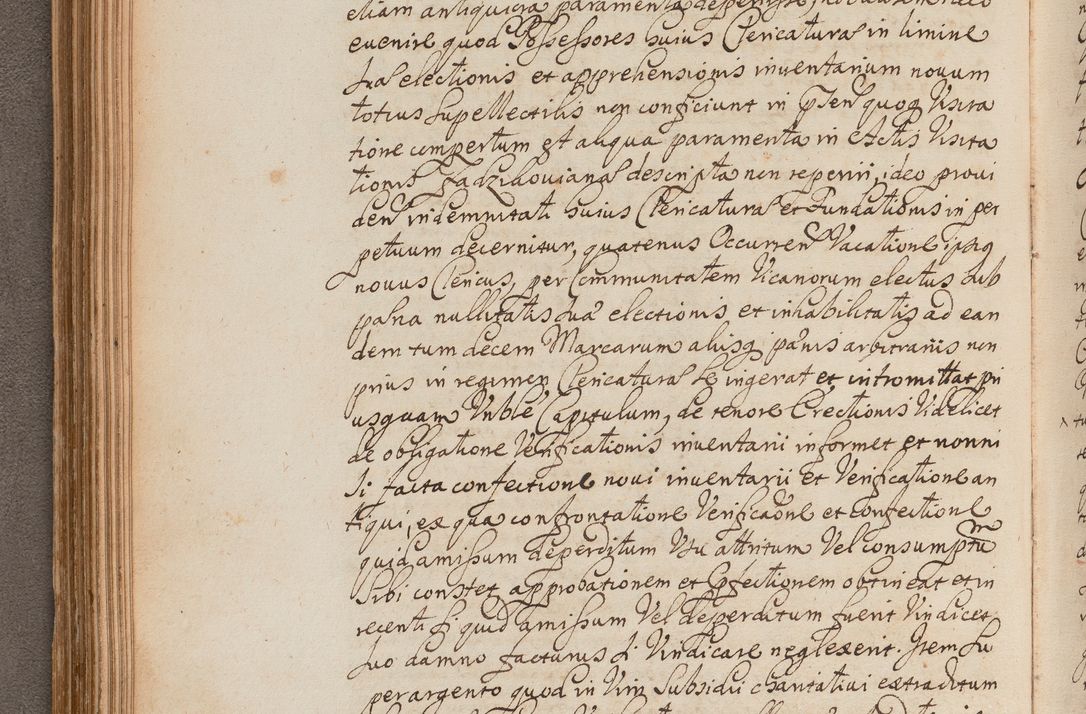 etiam antiquiora paramenta deperisse,
euenire quod Possessores huius Clericaturae in limine
suae electionis et apprehensionis inuentarium nouum
totius supellectilis non conficiunt in pñsen quoq Visita
tione compertum et aliqua paramenta in Actis Visita
tionis Zadzikovianae descripta non reperiri, ideo proui
den indemnitati huius Clericaturae et Fundationis in per
petuum decernitur, quatenus Occurren Vacatione ipsaq
nouus Clericus, per Communitatem Vicanorum electus sub
paena nullitatis suae electionis et inhabilitatis ad ean
dem tum decem Marcarum alijsq paenis arbitrarijs non
prius in regimen Clericaturae se ingerat et intromittat pri
usquam Vnble Capitulum, de tenore Erectionis Videlicet
de obligatione Verificationis inuentarii informet et nonni
si facta confectione noui inuentarii et Verificatione an
tiqui, ex qua confrontatione Verificaõne et confectione
quid amissum deperditum Vsu attritum Vel consumptum
sibi constet approbationem et Cofectionem obtineat et in
recenti si quid amissum Vel deperditum fuerit Vindicet
suo damno facturus si Vindicare neglexerit. Item su
per argento quod in Vim Subsidii charitatiui extraditum